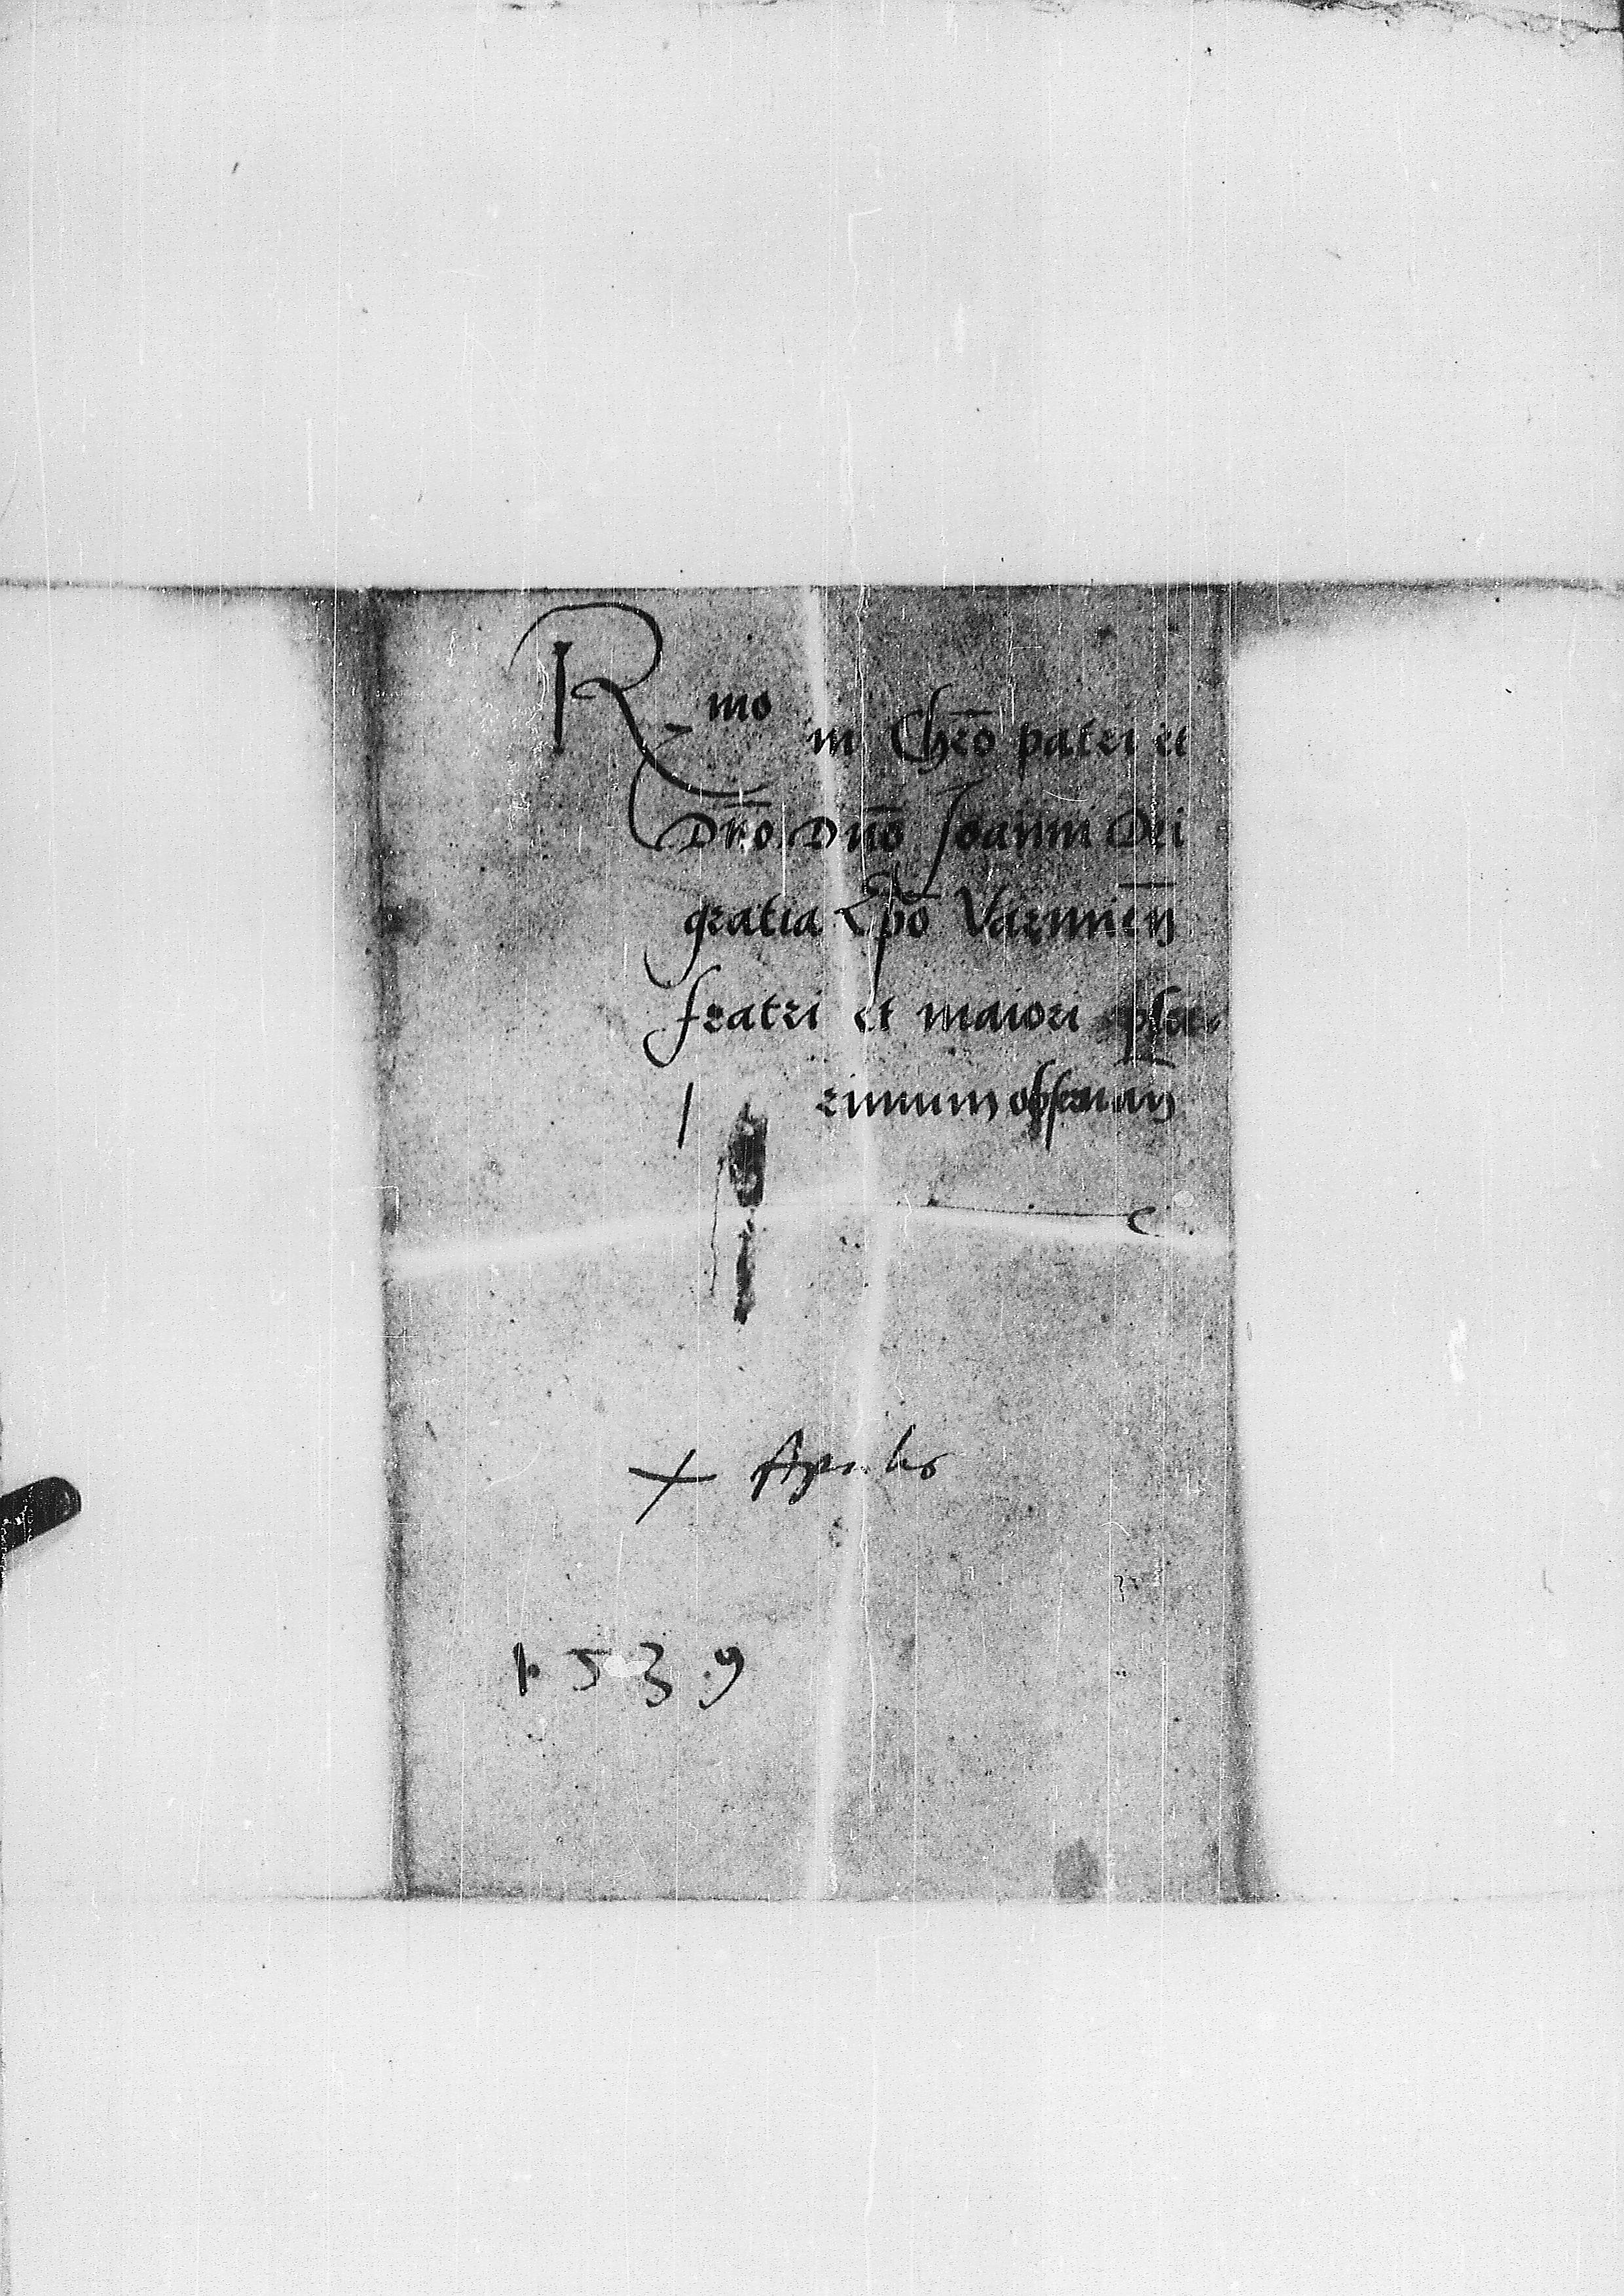 Rmo in Chro patri et
Dno Dno Joanni Dei
gratia Epo Varmien
fratri et maiori plu
rimum obseruan
X Aprilis
1539